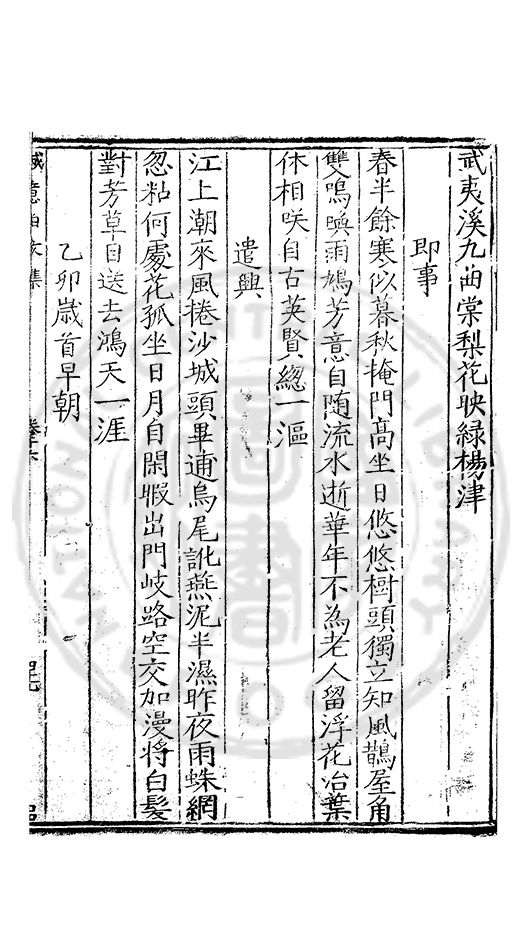 武夷溪九曲棠梨花映綠楊津
即事
春半餘寒似暮秋掩門高坐日悠悠樹頭獨立知風鵲屋角
雙鳴喚雨鳩芳意自随流水逝華年不為老人留浮花冶葉
休相咲自古英賢總一漚
遣興
江上潮來風捲沙城頭畢逋烏尾訛燕泥半濕昨夜雨蛛網
忽粘何處花孤坐日月自閑暇出門岐路空交加漫將白髮
對芳草目送去鴻天一涯
乙卯歲首早朝
誠意伯文集